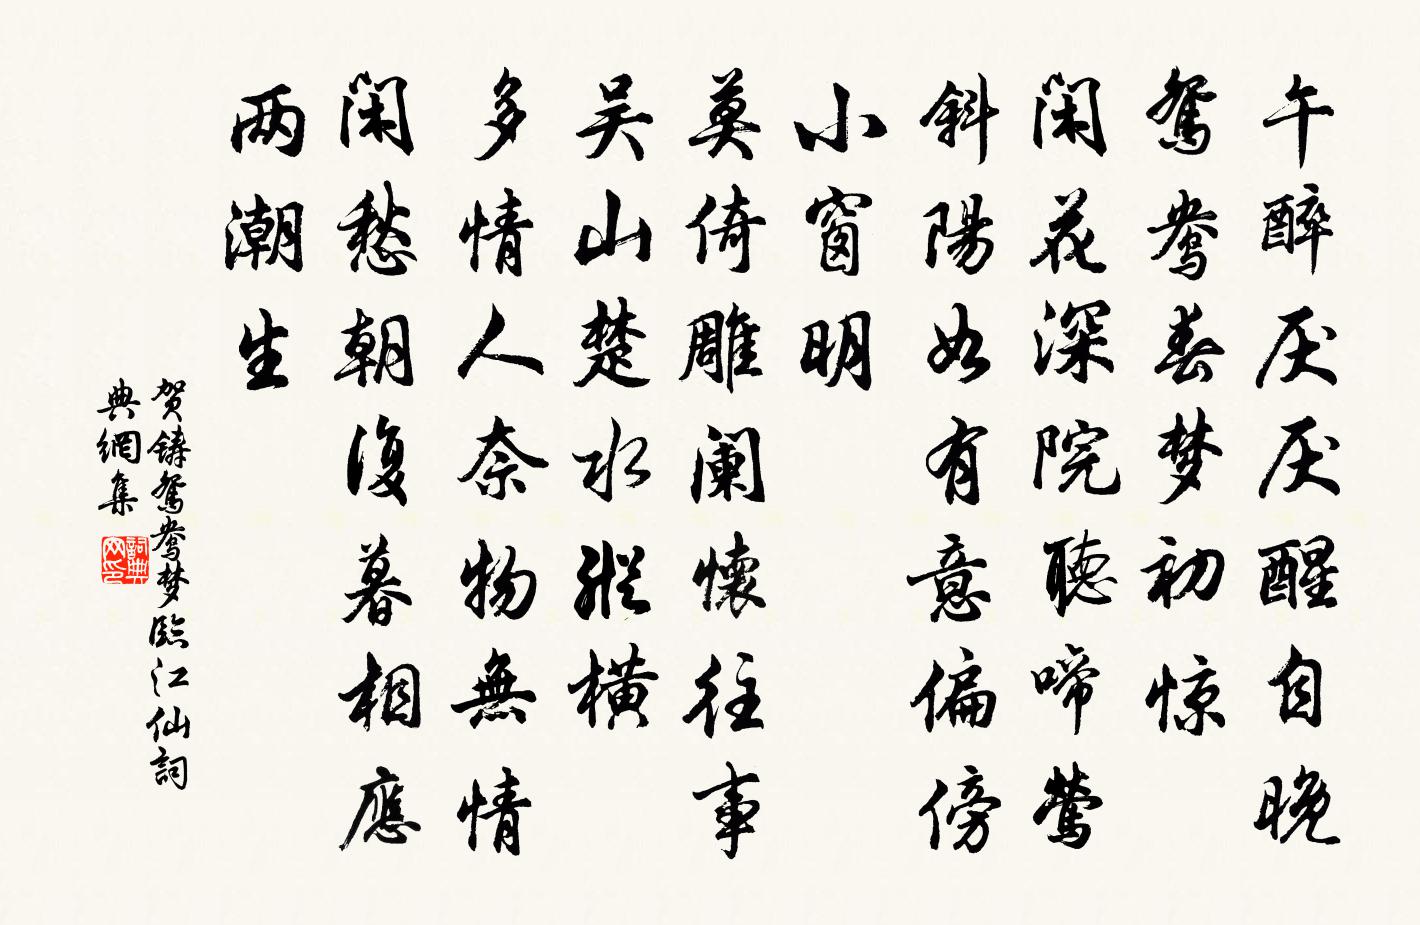 午醉厌厌醒自晚
鸳鸯春梦初惊
闲花深院聽啼莺
斜陽如有意偏傍
小窗明
莫倚雕阑懷往事
吴山楚水縱横
多情人奈物無情
闲愁朝復暮相應
两潮生
贺鑄鸳鸯梦臨江仙詞
典網集
詞典网印